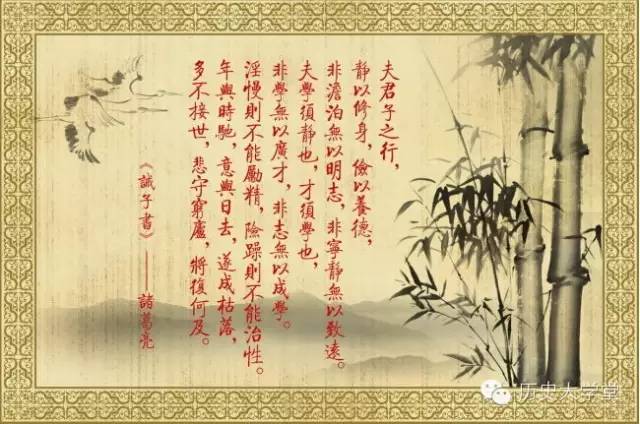 夫君子之行，
靜以修身，儉以養德，
非澹泊無以明志，非寧靜無以致遠。
夫學須靜也，才須學也，
非學無以廣才，非志無以成學。
淫慢則不能勵精，險躁則不能治性。
年與時馳，意與日去，遂成枯落，
多不接世，悲守窮廬，將復何及。
《誡子書》——諸葛亮
历史大学堂